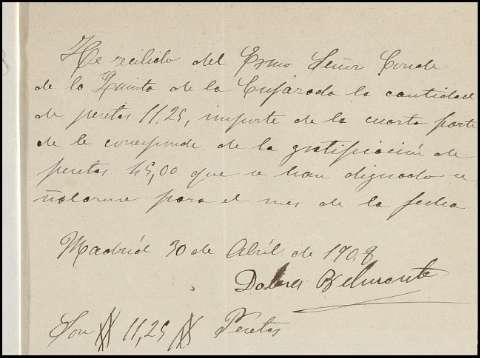 He recibido del Exmo Señor Conde
de la Quinta de la Enjarada la cantidad
de pesetas 11,25, importe de la cuarta parte
de le corresponde de la gratificación de
pesetas 45,00 que se han dignado se
ñalarme para el mes de la fecha
Madrid 30 de Abril de 1908
Dolores Belmonte
Son 11,25 Pesetas